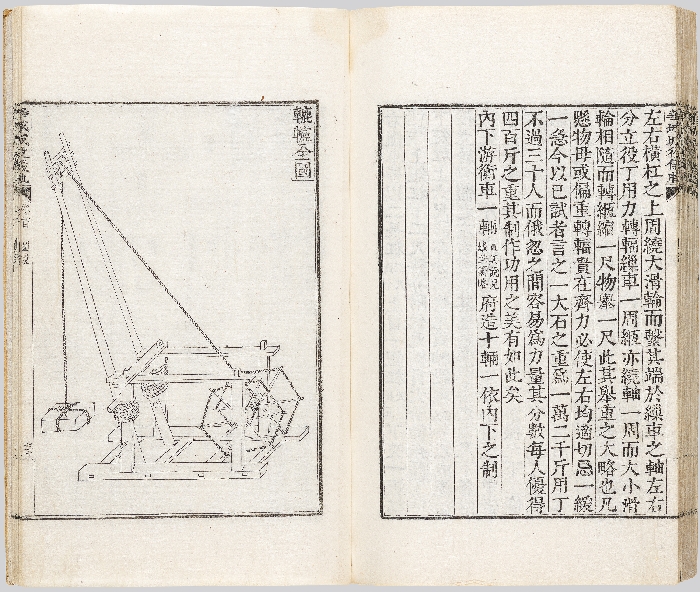 左右橫杠之上周繞大滑輪而繫其端於繅車之軸左右
分立役丁用力轉輻繅車一周綆亦繞軸一周而大小滑
輪相隨而轉綆縮一尺物擧一尺此其擧重之大略也凡
懸物毋或偏重轉輻貴在齊力必使左右均適切忌一緩
一急今以已試者言之一大石之重爲一萬二千斤用丁
不過三十人而俄忽之間容易爲力量其分數每人優得
四百斤之重其制作功用之美有如此矣
內下游衡車一輛 府造十輛一依內下之制
轆轤全圖